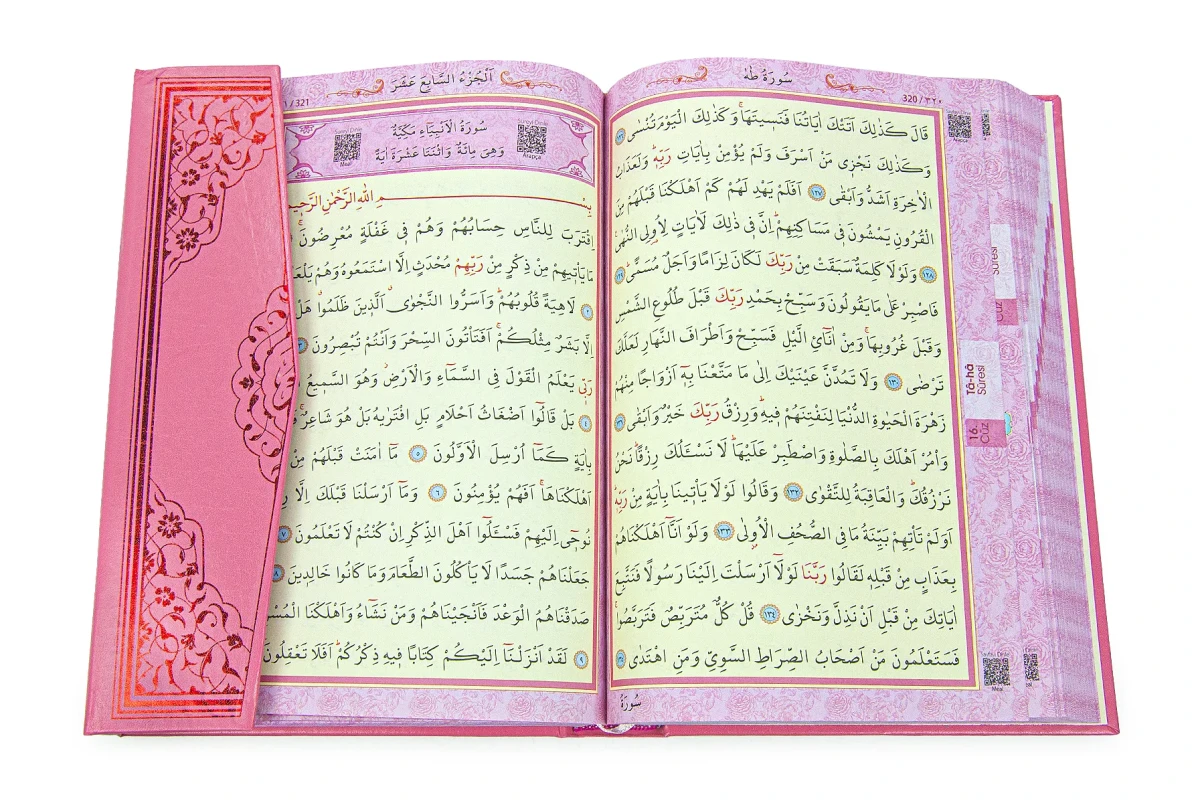 سُورَةُ طٰهٰ
320/٣٢٠
قَالَ كَذٰلِكَ اَتَتْكَ اٰيَاتُنَا فَنَسِيتَهَاۚ وَكَذٰلِكَ الْيَوْمَ تُنْسٰى ١٢٦
وَكَذٰلِكَ نَجْزٖى مَنْ اَسْرَفَ وَلَمْ يُؤْمِنْ بِاٰيَاتِ رَبِّهٖؕ وَلَعَذَابُ
الْاٰخِرَةِ اَشَدُّ وَاَبْقٰى ١٢٧ اَفَلَمْ يَهْدِ لَهُمْ كَمْ اَهْلَكْنَا قَبْلَهُمْ مِنَ
الْقُرُونِ يَمْشُونَ فٖى مَسَاكِنِهِمْؕ اِنَّ فٖى ذٰلِكَ لَاٰيَاتٍ لِاُولِى النُّهٰى
١٢٨ وَلَوْلَا كَلِمَةٌ سَبَقَتْ مِنْ رَبِّكَ لَكَانَ لِزَامًا وَاَجَلٌ مُسَمًّىؕ ١٢٩
فَاصْبِرْ عَلٰى مَا يَقُولُونَ وَسَبِّحْ بِحَمْدِ رَبِّكَ قَبْلَ طُلُوعِ الشَّمْسِ
وَقَبْلَ غُرُوبِهَاۚ وَمِنْ اٰنَآئِ الَّيْلِ فَسَبِّحْ وَاَطْرَافَ النَّهَارِ لَعَلَّكَ
تَرْضٰى ١٣٠ وَلَا تَمُدَّنَّ عَيْنَيْكَ اِلٰى مَا مَتَّعْنَا بِهٖٓ اَزْوَاجًا مِنْهُمْ
زَهْرَةَ الْحَيٰوةِ الدُّنْيَا لِنَفْتِنَهُمْ فٖيهِؕ وَرِزْقُ رَبِّكَ خَيْرٌ وَاَبْقٰى ١٣١
وَأْمُرْ اَهْلَكَ بِالصَّلٰوةِ وَاصْطَبِرْ عَلَيْهَاؕ لَا نَسْـَٔلُكَ رِزْقًاؕ نَحْنُ
نَرْزُقُكَؕ وَالْعَاقِبَةُ لِلتَّقْوٰى ١٣٢ وَقَالُوا لَوْلَا يَأْتٖينَا بِاٰيَةٍ مِنْ رَبِّهٖؕ
اَوَلَمْ تَأْتِهِمْ بَيِّنَةُ مَا فِى الصُّحُفِ الْاُولٰى ١٣٣ وَلَوْ اَنَّٓا اَهْلَكْنَاهُمْ
بِعَذَابٍ مِنْ قَبْلِهٖ لَقَالُوا رَبَّنَا لَوْلَٓا اَرْسَلْتَ اِلَيْنَا رَسُولًا فَنَتَّبِعَ
اٰيَاتِكَ مِنْ قَبْلِ اَنْ نَذِلَّ وَنَخْزٰى ١٣٤ قُلْ كُلٌّ مُتَرَبِّصٌ فَتَرَبَّصُواۚ
فَسَتَعْلَمُونَ مَنْ اَصْحَابُ الصِّرَاطِ السَّوِىِّ وَمَنِ اهْتَدٰى ١٣٥
سُورَةُ
Arapça
Sûresi
Cüz
Tâ-hâ
Sûresi
16.
Cüz
Meal
اَلْجُزْءُ السَّابِعَ عَشَرَ
/ 321
سُورَةُ الْاَنْبِيَٓاءِ مَكِّيَّةٌ
وَهِىَ مِائَةٌ وَاثْنَتَا عَشْرَةَ اٰيَةً
Sureyi Dinle
Arapça
Sureyi Dinle
Meal
بِسْمِ اللّٰهِ الرَّحْمٰنِ الرَّحٖيمِ
اِقْتَرَبَ لِلنَّاسِ حِسَابُهُمْ وَهُمْ فٖى غَفْلَةٍ مُعْرِضُونَۚ
مَا يَأْتٖيهِمْ مِنْ ذِكْرٍ مِنْ رَبِّهِمْ مُحْدَثٍ اِلَّا اسْتَمَعُوهُ وَهُمْ
٢ لَاهِيَةً قُلُوبُهُمْؕ وَاَسَرُّوا النَّجْوٰىۗ اَلَّذٖينَ ظَلَمُواۗ هَلْ
اِلَّا بَشَرٌ مِثْلُكُمْۚ اَفَتَأْتُونَ السِّحْرَ وَاَنْتُمْ تُبْصِرُونَ ٣
رَبّٖى يَعْلَمُ الْقَوْلَ فِى السَّمَٓاءِ وَالْاَرْضِؗ وَهُوَ السَّمٖيعُ
٤ بَلْ قَالُٓوا اَضْغَاثُ اَحْلَامٍ بَلِ افْتَرٰيهُ بَلْ هُوَ شَاعِرٌۚ
بِاٰيَةٍ كَمَٓا اُرْسِلَ الْاَوَّلُونَ ٥ مَٓا اٰمَنَتْ قَبْلَهُمْ مِنْ
اَهْلَكْنَاهَاۚ اَفَهُمْ يُؤْمِنُونَ ٦ وَمَٓا اَرْسَلْنَا قَبْلَكَ اِلَّا
نُوحٖٓى اِلَيْهِمْ فَسْـَٔلُٓوا اَهْلَ الذِّكْرِ اِنْ كُنْتُمْ لَا تَعْلَمُونَ ٧
جَعَلْنَاهُمْ جَسَدًا لَا يَأْكُلُونَ الطَّعَامَ وَمَا كَانُوا خَالِدٖينَ ٨
صَدَقْنَاهُمُ الْوَعْدَ فَاَنْجَيْنَاهُمْ وَمَنْ نَشَٓاءُ وَاَهْلَكْنَا
٩ لَقَدْ اَنْزَلْنَٓا اِلَيْكُمْ كِتَابًا فٖيهِ ذِكْرُكُمْؕ اَفَلَا تَعْقِلُونَ